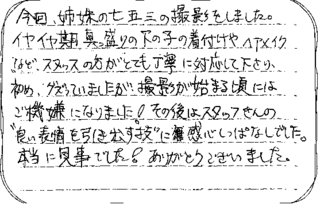 今回、姉妹の七五三の撮影をしました。
イヤイヤ期真っ盛りの下の子の着付けやヘアメイク
など、スタッフの方がとても丁寧に対応して下さり、
初め、ぐずっていましたが撮影が始まる頃には
ご機嫌になりました！その後はスタッフさんの
"良い表情を引き出す技"に感心しっぱなしでした。
本当に見事でした！ありがとうございました。